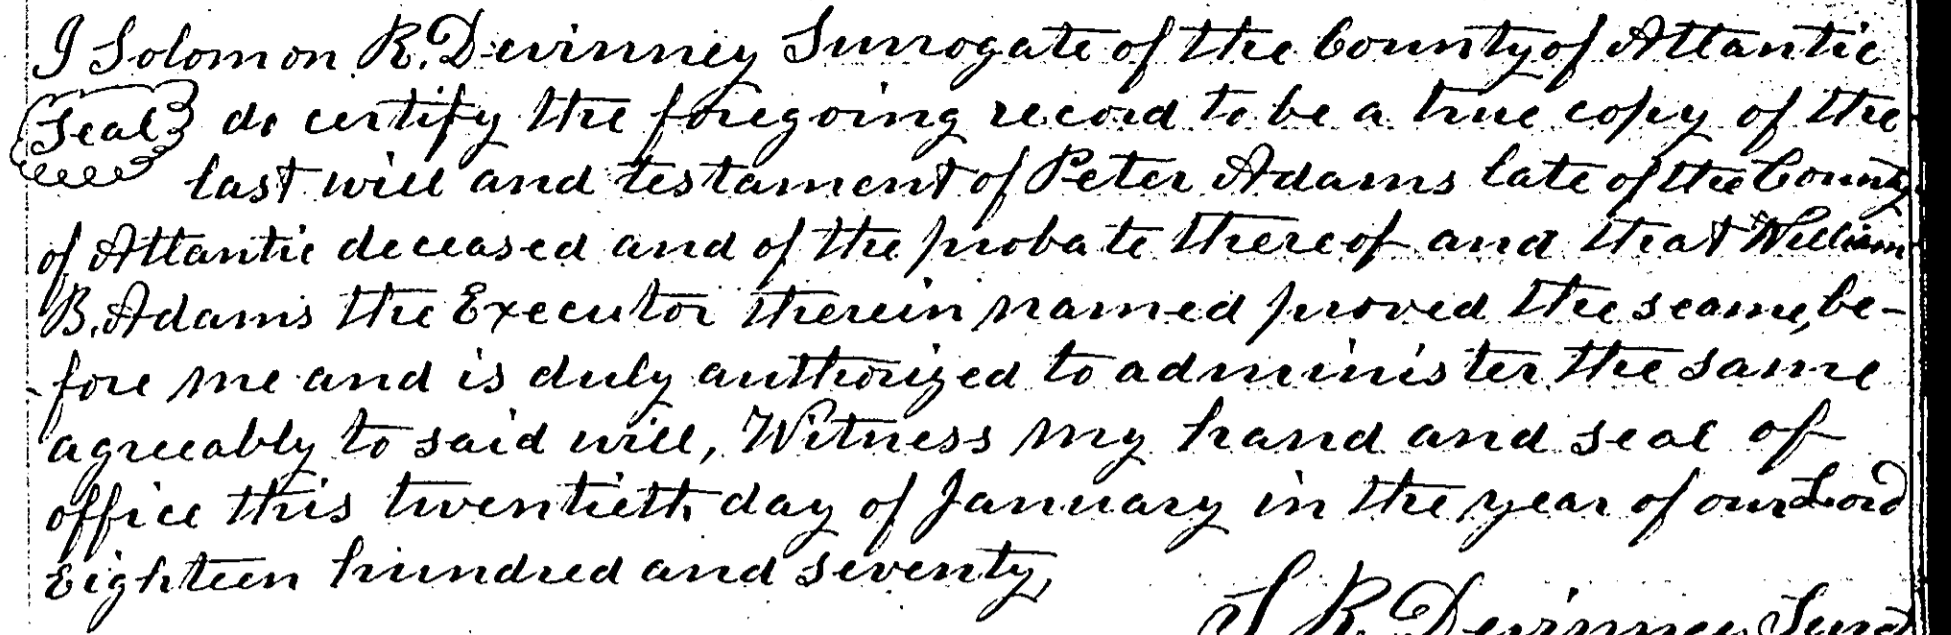 I Solomon R. Devinney Surrogate of the County of Atlantic
Seal do certify the foregoing record to be a true copy of the
last will and testament of Peter Adams late of the County
of Atlantic deceased and of the probate thereof and that William
B. Adams the Executor therein named proved the seame, be-
fore me and is duly authorized to administer the same
agreeably to said will, Witness my hand and seal of
office this twentieth day of January in the year of our Lord
Eighteen hundred and seventy,
S R Devinney Surr